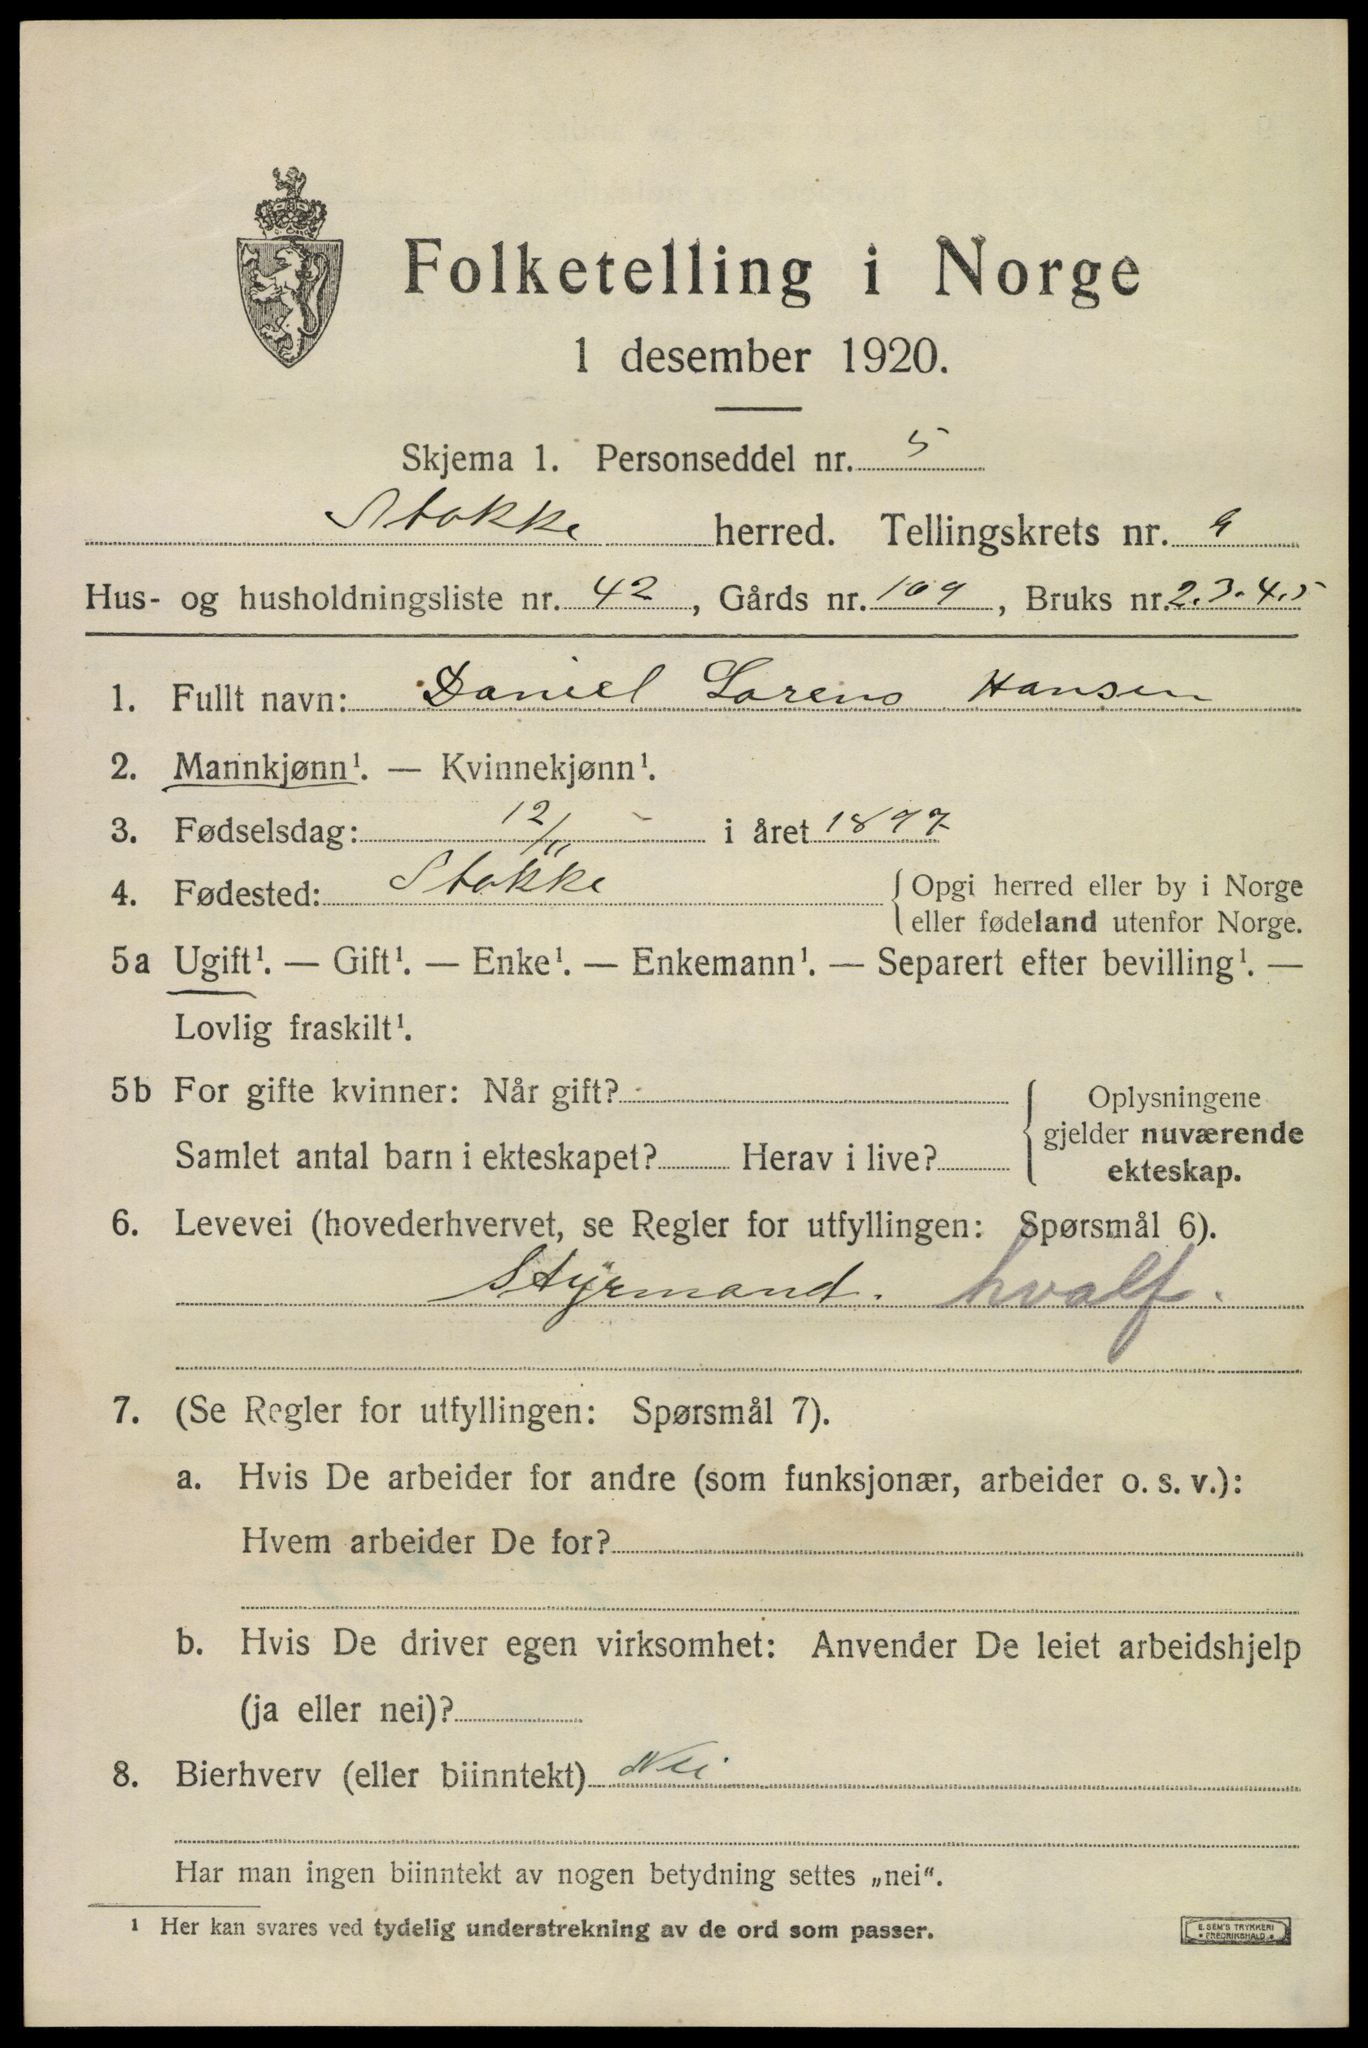 Folketelling i Norge
1 desember 1920.
Skjema 1. Personseddel nr. 5
Stokke herred. Tellingskrets nr. 9
Hus- og husholdningsliste nr. 42, Gårds nr. 109, Bruks nr. 2.3.4.5
1. Fullt navn: Daniel Lorens Hansen
2. Mannkjønn¹. — Kvinnekjønn¹.
3. Fødselsdag: 12/11 i året 1897
4. Fødested: Stokke { Opgi herred eller by i Norge
eller fødeland utenfor Norge.
5a Ugift¹. — Gift¹. — Enke¹. — Enkemann¹. — Separert efter bevilling¹. —
Lovlig fraskilt¹.
5b For gifte kvinner: Når gift?
Samlet antal barn i ekteskapet? Herav i live?
Oplysningene
gjelder nuværende
ekteskap.
6. Levevei (hovederhvervet, se Regler for utfyllingen: Spørsmål 6).
Styrmand. hvalf.
7. (Se Regler for utfyllingen: Spørsmål 7).
a. Hvis De arbeider for andre (som funksjonær, arbeider o. s. v.):
Hvem arbeider De for?
b. Hvis De driver egen virksomhet: Anvender De leiet arbeidshjelp
(ja eller nei)?
8. Bierhverv (eller biinntekt) Nei
Har man ingen biinntekt av nogen betydning settes „nei“.
¹ Her kan svares ved tydelig understrekning av de ord som passer.
E. SEM'S TRYKKERI
FREDRIKSHALD